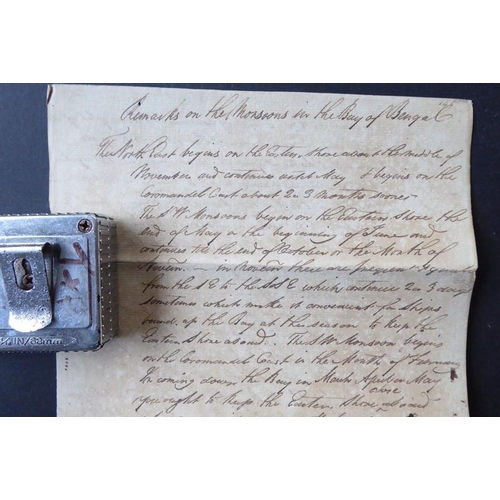 Remarks on the Monsoons in the Bay of Bengal
The North East begins on the Eastern Shore about the middle of
November and continues until May & begins on the
Coromandel Coast about 2 or 3 months sooner
The S W Monsoons begin on the Eastern Shore the
end of May or the beginning of June and
continues till the end of October or the Month of
in Novem there are frequent
from the S E to the S S E which continue 2 or 3 days
sometimes which makes it convenient for Ships
bound up the Bay at this season to keep the
Eastern Shore aboard. The S W Monsoon begins
on the Coromandel Coast in the Month of
In coming down the Bay in March April or May
you ought to keep the Eastern Shore close aboard